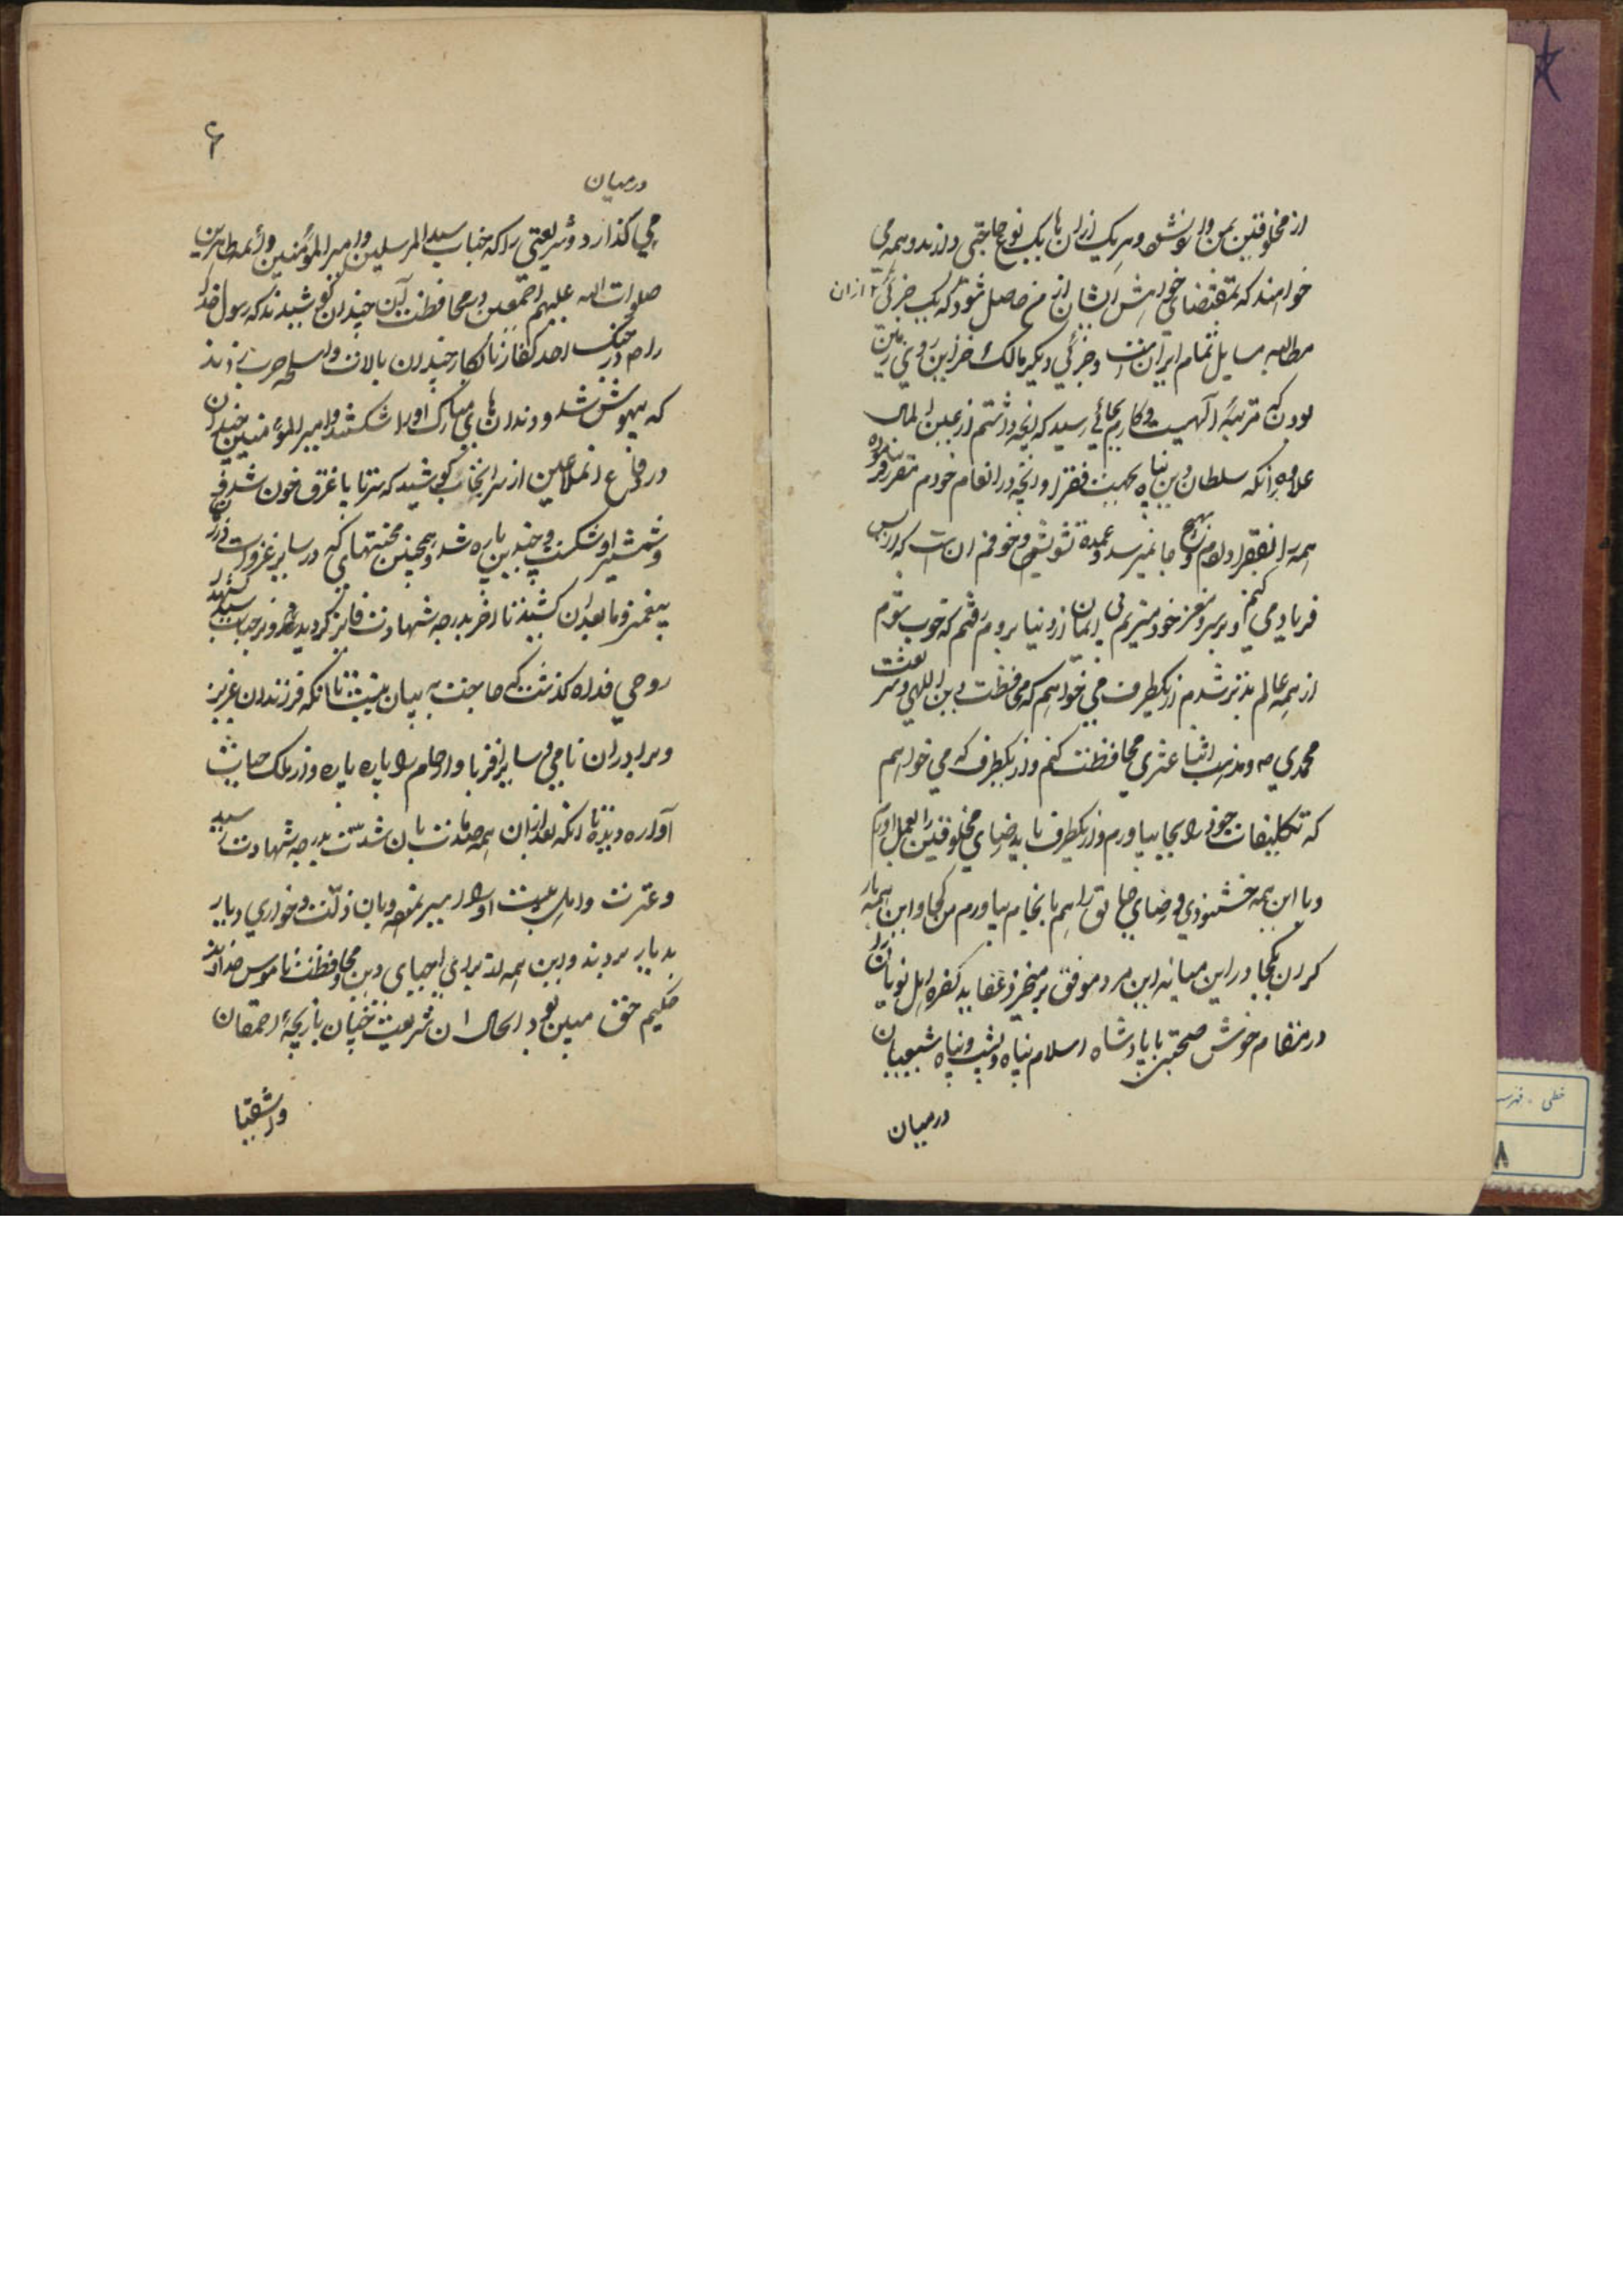 از مخلوقین بمن وا نوشته وهر یک از ان ها بیک نوع حاجتی دارند وهمه می
خواهند که بمقتضای خواهش ایشان از من حاصل شود که یک جزئی از ان
مطالبه مسایل تمام ایران است وجزئی دیگر مالک خزاین روی زمین
بودن که مرتبهٔ الهیست وکارم بجائے رسید که آنچه داشتم از عین المال
علاوه برآنکه سلطان دین پناه بجهت فقرا وآنچه در انعام خودم مقرر فرموده
همه را بفقرا دادم وبهیچ جا نمیرسد وعمدهٔ تشویش وخوفم ان است که از بس
فریاد می کنم وبر سر ومغز خود میزنم بی ایمان از دنیا بروم رفتم که خوب شوم
از همه عالم بدتر شدم از یکطرف می خواهم که محافظت دین الهی وشریعت
محمدی ص ومذهب اثنا عشری محافظت کنم واز یکطرف که می خواهم
که تکلیفات خود را بجا بیاورم واز یکطرف باید رضای مخلوقین را بعمل اورم
وبا این همه خشنودی ورضای خالق را هم بانجام بیاورم من کجا واین همه بار
گران کجا در این میانه این مرد موفق بر مخرز عقاید کفره اهل یونان را
در مقام خوش صحبتی با پادشاه اسلام پناه وپشت وپناه شیعیان
درمیان
۶
درمیان
می گذارد وشریعتی را که جناب سید المرسلین وامیر المؤمنین وائمهٔ طاهرین
صلوات الله علیهم اجمعین در محافظت آن چندان کوشیدند که رسول خدا
را در جنک احد کفار نابکار چندان بالات واسلحه حرب زدند
که بیهوش شد ودندان های مبارک اورا شکستند وامیر المؤمنین چندان
در دفع انملاعین از سر انجناب کوشید که سر تا پا غرق خون شد
وشمشیر او شکست وچندین پاره شد وهمچنین محنتهای که در سایر غزوات در زمان
پیغمبر وما بعد ان کشید تا اخر بدرجه شهادت فایز گردید وبر جناب سید الشهدا
روحی فداه گذشت که حاجت به بیان نیست تا انکه فرزندان عزیز
وبرادران نامی وسایر اقربا وارحام را پاره پاره واز ملک حیات
آواره دید تا انکه بعد از ان همه صدمات بان شدت بدرجه شهادت رسید
وعترت واهل بیت اورا اسیر نموده وبان ذلت وخواری دیار
بدیار بردند واین همه را برای احیای دین ومحافظت ناموس خداوند
حکیم حق مبین بود الحال ان شریعت چنان بازیچهٔ احمقان
واشقیا
خطی - فهرست
۸